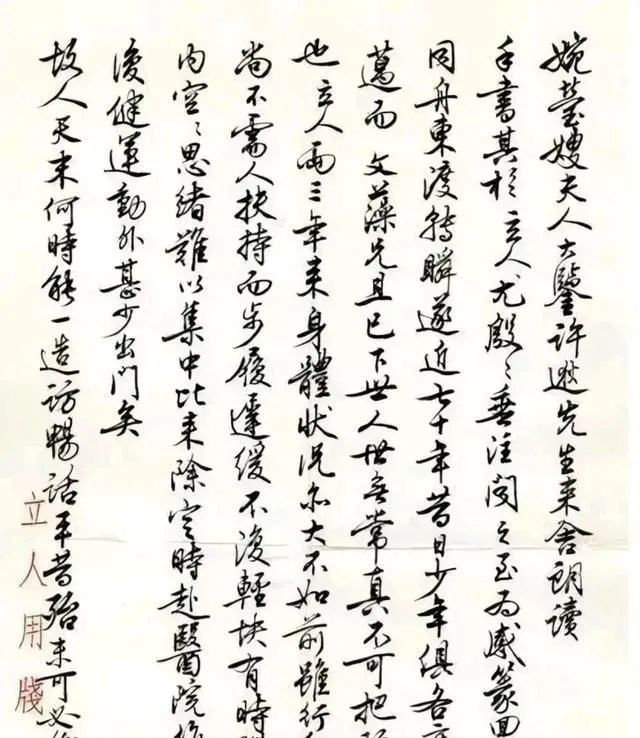 婉莹嫂夫人大鑒許邀先生來舍朗讀
手書其於立人尤殷〻垂注聞之至為感篆回
同舟東渡轉瞬遂近七十年昔日少年俱各
邁而文藻兄且已下世人世無常真不可把
也立人兩三年來身體狀況亦大不如前雖行
尚不需人扶持而步履遲緩不復輕快有時
內空〻思緒難以集中比來除定時赴醫院
復健運動外甚少出門矣
故人天末何時能一造訪暢話平昔殆未可必
立人用牋